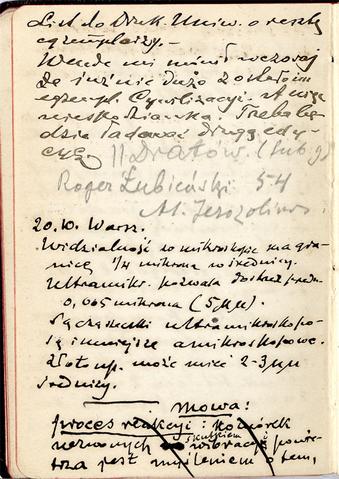 List do Druk. Uniw. o resztę
egzemplarzy. —
Wende mi mówił wczoraj
że już nie dużo zostało im
egzempl. Cywilizacji. A więc
niespodzianka. Trzeba bę-
dzie ładować drugą edy-
cję.
Roger Łubieński 54
Al. Jerozolims.
20.10. Warsz.
Widzialność w mikroskopie ma gra-
nicę 1/4 mikrona w średnicy.
Ultramikr. pozwala dostrzec
0,005 mikrona (5 μμ).
Są cząstki ultramikroskopo-
we i mniejsze amikroskopowe.
Złoto np. może mieć 2-3 μμ
średnicy.
Mowa:
proces reakcji: komórek
nerwowych skutkiem wibracji powie-
trza jest myśleniem o tem,